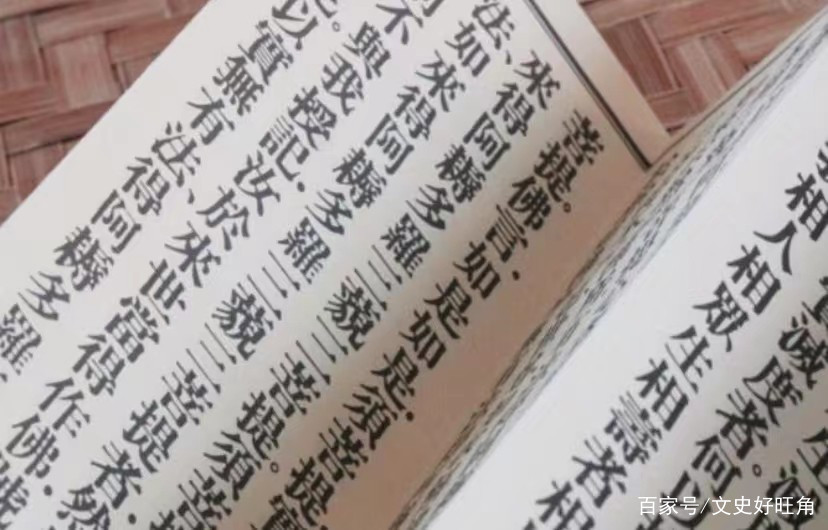 滅度者。何以
相人相眾生相壽者相
菩提。佛言.如是如是.須菩提實
來得阿耨多羅三藐三菩提。須菩
法、如來得阿耨多羅三藐三菩提者.然
不與我授記.汝於來世當得作佛.號
以實無有法、得阿耨多羅
百家号/文史好旺角